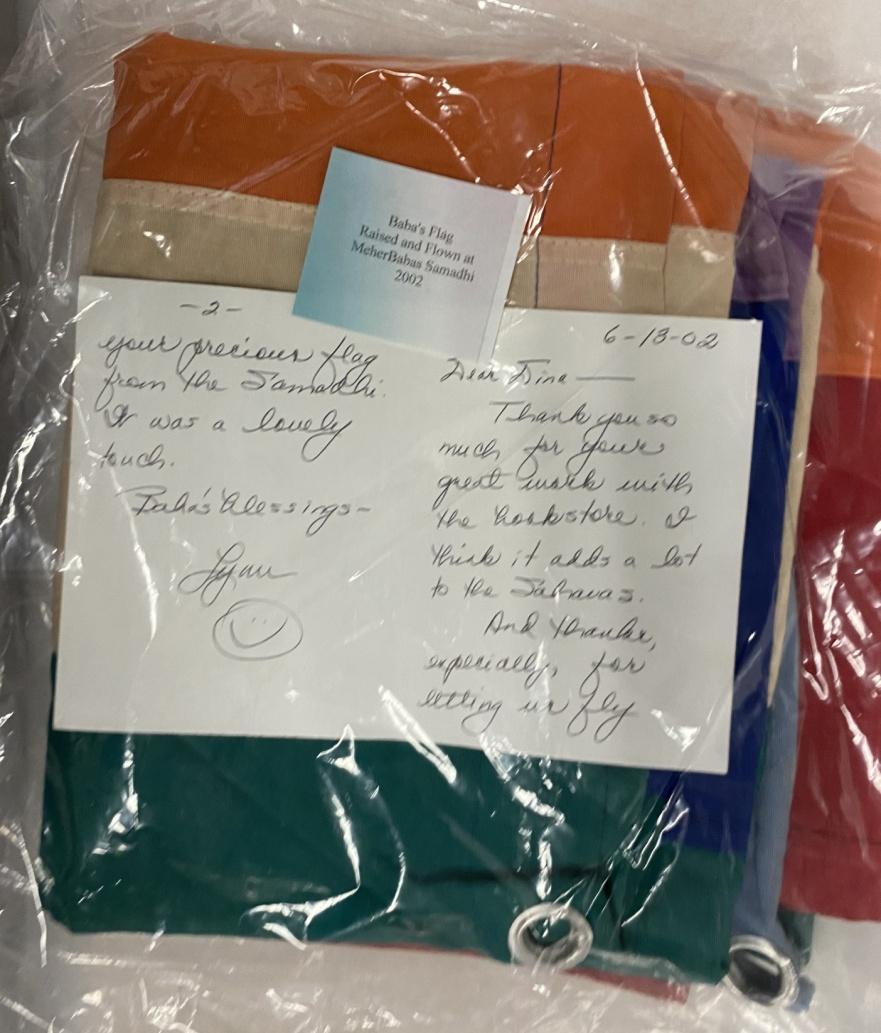 Baba's Flag
Raised and Flown at
MeherBabas Samadhi
2002
6-13-02
Dear Dina —
Thank you so
much for your
great work with
the bookstore. I
think it adds a lot
to the Sahavas.
And thanks,
especially, for
letting us fly
-2-
your precious flag
from the Samadhi.
It was a lovely
touch.
Baba's blessings-
Lynn